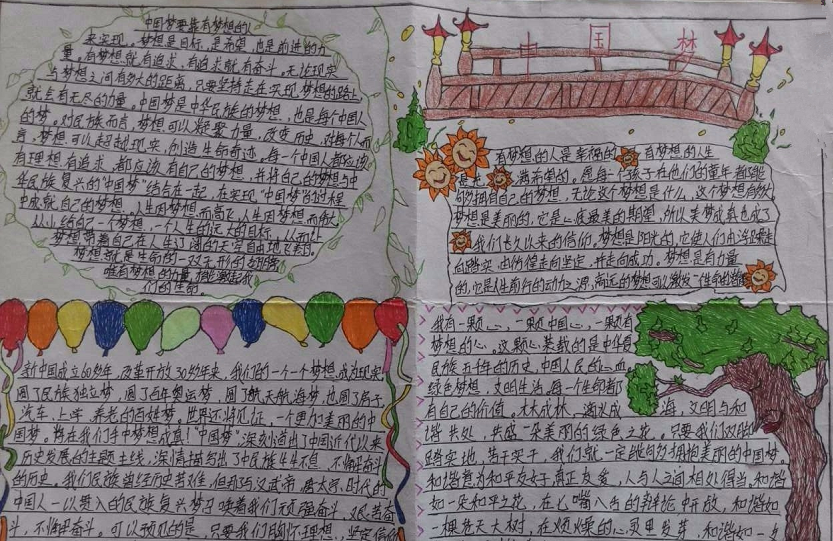 中国梦要靠有梦想的人
来实现。梦想是目标,是希望,也是前进的力
量。有梦想就有追求,有追求就有奋斗。无论现实
与梦想之间有多大的距离,只要坚持走在实现梦想的路上,
就会有无尽的力量。中国梦是中华民族的梦想,也是每个中国人
的梦。对民族而言,梦想可以凝聚力量,改变历史,对每个人而
言,梦想可以超越现实,创造生命奇迹。每一个中国人都应该
有理想有追求,都应该有自己的梦想,并将自己的梦想与中
华民族复兴的“中国梦”结合在一起,在实现“中国梦”的过程
中成就自己的梦想。人生因梦想而高飞,人生因梦想而伟大
从小给自己一个梦想,一个人生的远大的目标,从而让
梦想带着自己在人生辽阔的天空自由地飞翔。
梦想就是生命的一双无形的翅膀
唯有梦想的力量,才能激起我
们的生命。
中 国 梦
有梦想的人是幸福的 有梦想的人生
是充满希望的。愿每个孩子在他们的童年都能
够拥有自己的梦想,无论这个梦想是什么,这个梦想有多大
梦想是美丽的,它是心底最美的期望,所以美梦成真也成了
我们长久以来的信仰,梦想是阳光的,它使人们由浮躁走
向踏实,由彷徨走向坚定,并走向成功。梦想是有力量
的,它是人生前行的动力之源,高远的梦想可以激发一个生命的潜能
新中国成立60多年,改革开放30多年来,我们的一个一个梦想成为现实
圆了民族独立梦,圆了百年奥运梦,圆了航天航海梦,也圆了房子
汽车、上学、养老的百姓梦,世界还将见证,一个更加美丽的中
国梦。将在我们手中梦想成真!“中国梦”,深刻道出了中国近代以来
历史发展的主题主线,深情描绘出了中民族生生不息、不懈奋斗
的历史,我们民族曾经历苦难,但却与汉武帝、唐太宗,时代的
中国人一以贯入的民族复兴梦召唤着我们顽强奋斗、艰苦奋
斗、不懈奋斗。可以预见的是,只要我们胸怀理想、坚定信
我有一颗心,一颗中国心,一颗有
梦想的心。这颗心装载的是中华
民族五千年的历史,中国人民的心血
绿色梦想,文明生活,每一个生命都
有自己的价值。木木成林,滴水成海,文明与和
谐共处,共成一朵美丽的绿色之花。只要我们
踏实地,苦干实干,我们就一定能够拥抱美丽的中国梦
和谐意为和平友好、真正友爱,人与人之间相处得当,和谐
如一朵和平之花,在七嘴八舌的辩论中开放,和谐如
一棵苍天大树,在烦燥的心灵里发芽,和谐如一